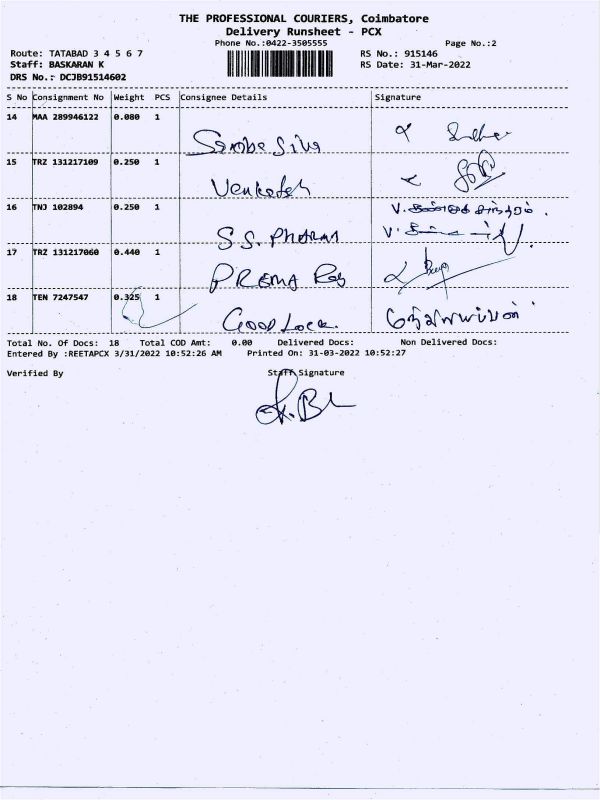 THE PROFESSIONAL COURIERS, Coimbatore
Delivery Runsheet - PCX
Phone No.:0422-3505555
Page No.:2
Route: TATABAD 3 4 5 6 7
RS No.: 915146
Staff: BASKARAN K
RS Date: 31-Mar-2022
DRS No.: DCJB91514602
S No Consignment No Weight PCS Consignee Details Signature
14 MAA 289946122 0.080 1
15 TRZ 131217109 0.250 1
Venkatesh
16 TNJ 102894 0.250 1
S.S. Pharma
17 TRZ 131217060 0.440 1
PREMA
18 TEN 7247547 0.325 1
GOOD Lock.
Total No. Of Docs: 18 Total COD Amt: 0.00 Delivered Docs: Non Delivered Docs:
Entered By :REETAPCX 3/31/2022 10:52:26 AM Printed On: 31-03-2022 10:52:27
Verified By Staff Signature